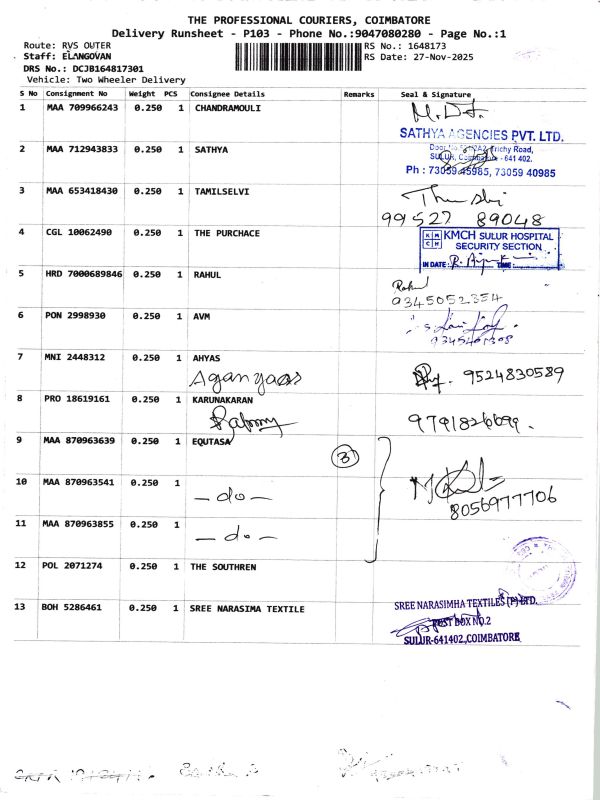 THE PROFESSIONAL COURIERS, COIMBATORE
Delivery Runsheet - P103 - Phone No.:9047080280 - Page No.:1
Route: RVS OUTER
RS No.: 1648173
Staff: ELANGOVAN
RS Date: 27-Nov-2025
DRS No.: DCJB164817301
Vehicle: Two Wheeler Delivery
S No Consignment No Weight PCS Consignee Details Remarks Seal & Signature
1 MAA 709966243 0.250 1 CHANDRAMOULI
SATHYA AGENCIES PVT. LTD.
2 MAA 712943833 0.250 1 SATHYA
Trichy Road,
SULUR, Coimbatore - 641 402.
Ph : 73059 45985, 73059 40985
3 MAA 653418430 0.250 1 TAMILSELVI
99527 89048
4 CGL 10062490 0.250 1 THE PURCHACE
KMCH SULUR HOSPITAL
SECURITY SECTION
IN DATE: TIME
5 HRD 7000689846 0.250 1 RAHUL
Rahul
9345052354
6 PON 2998930 0.250 1 AVM
7 MNI 2448312 0.250 1 AHYAS
9524830589
8 PRO 18619161 0.250 1 KARUNAKARAN
9 MAA 870963639 0.250 1 EQUTASA
3
10 MAA 870963541 0.250 1
- do -
8056977706
11 MAA 870963855 0.250 1
- do -
12 POL 2071274 0.250 1 THE SOUTHREN
13 BOH 5286461 0.250 1 SREE NARASIMA TEXTILE
SREE NARASIMHA TEXTILES (P) LTD.
POST BOX NO.2
SULUR-641402, COIMBATORE